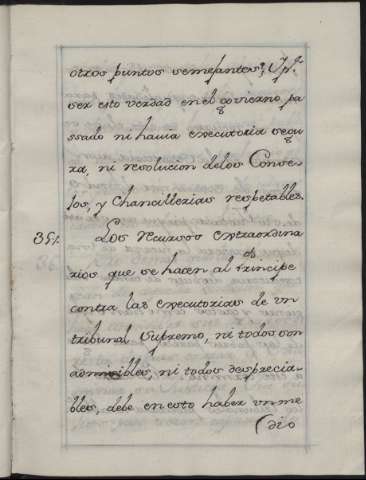 otros puntos semejantes? Y pr.
ser esto verdad en el govierno pa
ssado ni havia executoria segu
ra, ni resolucion delos Conse-
jos, y Chancillerias respetables.
35,, Los recursos extraordina
rios que se hacen al Principe
contra las executorias de vn
tribunal Supremo, ni todos son
admisibles, ni todos desprecia-
bles, debe en esto haber vn me
dio